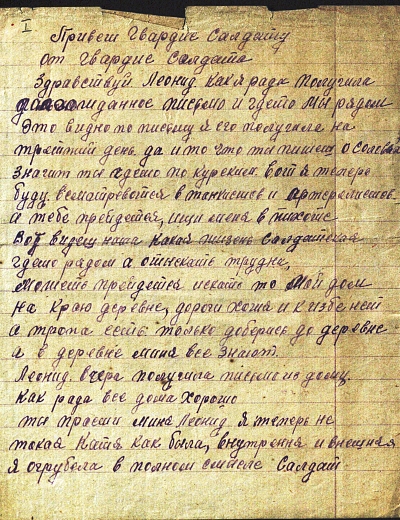 I
Привет Гвардие Салдату
от Гвардие Салдата
Здравствуй Леонид как я рада получила
долгожиданное письмо и гдето мы рядом
Это видно по письму я его получила на
третий день да и то что ты пишеш о соловь
значит ты гдето по курским вот я теперь
буду всматреватся в танкистов и артерелистов
а тебе прейдется, ищи меня в пихоте
Вот видеш наша какая жизень салдатская
гдето рядом а отискать трудна,
может прейдется искать то мой дом
на краю деревне, дороги хотя и к избе нет
а тропа есть только доберись до деревне
а в деревне миня все знают.
Леонид вчера получила письмо из дому
как рада все дома хорошо
ты просиш миня Леонид я теперь не
такая Катя как была, внутрення и внешняя
я огрубела в полном смысле Салдат